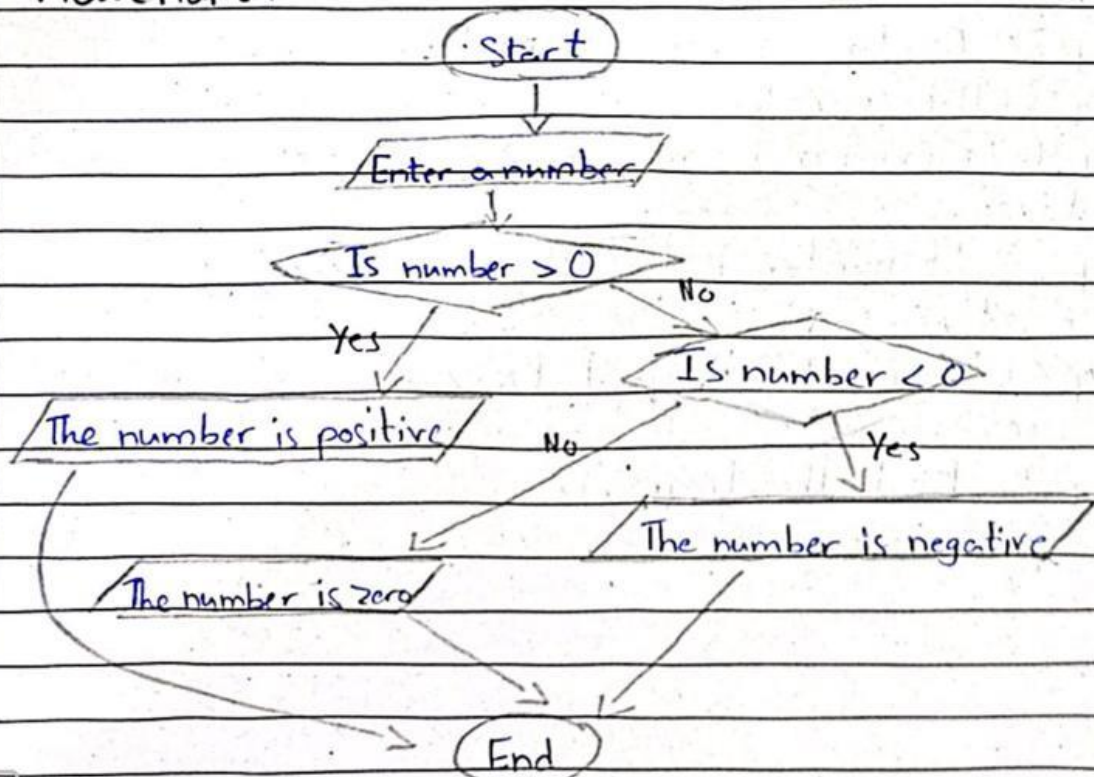 Start
Enter a number
Is number > 0
No
Yes
Is number < 0
The number is positive
No
Yes
The number is negative
The number is zero
End